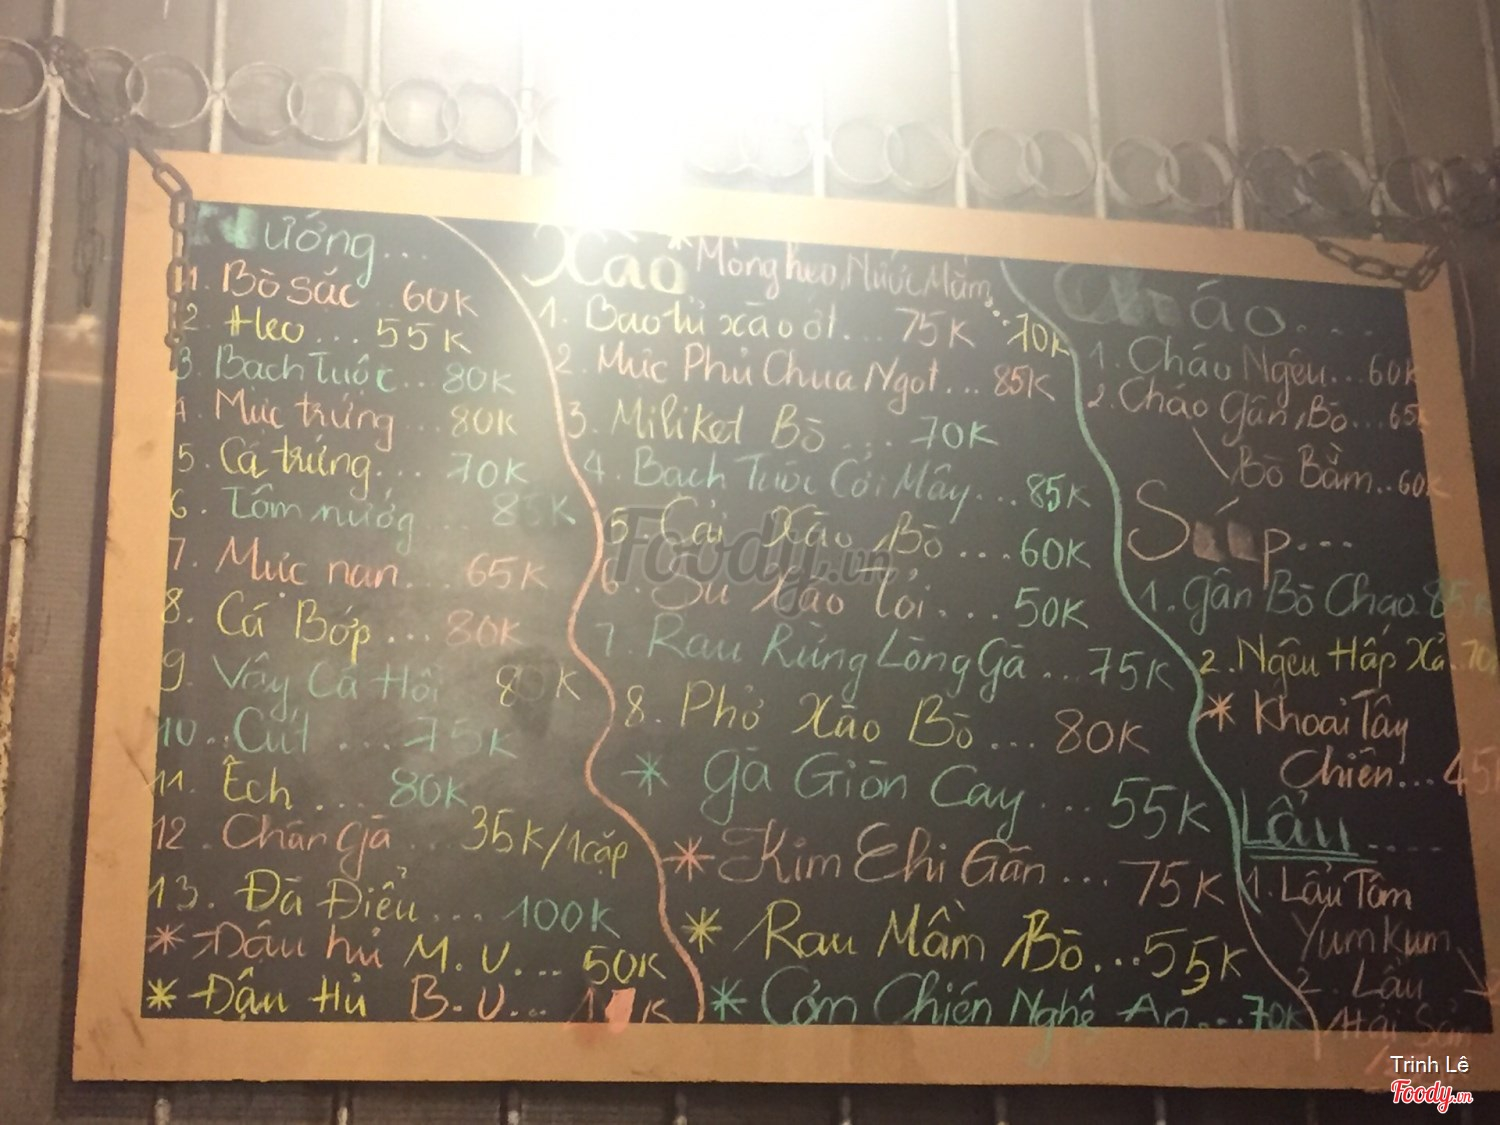 Nướng...
1. Bò sắc.. 60K
2. Heo... 55K
3. Bạch Tuộc... 80K
4. Mực trứng... 80K
5. Cá trứng... 70K
6. Tôm nướng... 85K
7. Mực nan... 65K
8. Cá Bớp... 80K
9. Vây Cá Hồi 80K
10. Cút... 75K
11. Ếch... 80K
12. Chân gà... 35K/1cặp
13. Đà Điểu... 100K
* Đậu hủ M.U... 50K
* Đậu Hủ B.U... K
Xào
* Móng heo Nước Mắm... 70K
1. Bao tử xào ớt... 75K
2. Mực Phủ Chua Ngọt... 85K
3. Miliket Bò... 70K
4. Bạch Tuộc Cỏi Mây... 85K
5. Cải Xào Bò... 60K
6. Su Xào Tỏi... 50K
7. Rau Rừng Lòng gà... 75K
8. Phở Xào Bò... 80K
* gà Giòn Cay... 55K
* Kim Chi Gân... 75K
* Rau Mầm Bò... 55K
* Cơm Chiên Nghệ An... 70K
Cháo....
1. Cháo Ngêu... 60K
2. Cháo gân Bò... 65K
Bò Bằm.. 60K
Súp...
1. gân Bò Chao 85K
2. Ngêu Hấp Xả. 70
* Khoai Tây
Chiên... 45K
Lẩu....
1. Lẩu Tôm
Yum Kum
2. Lẩu
Hải Sản
Foody.vn
Trinh Lê
Foody.vn